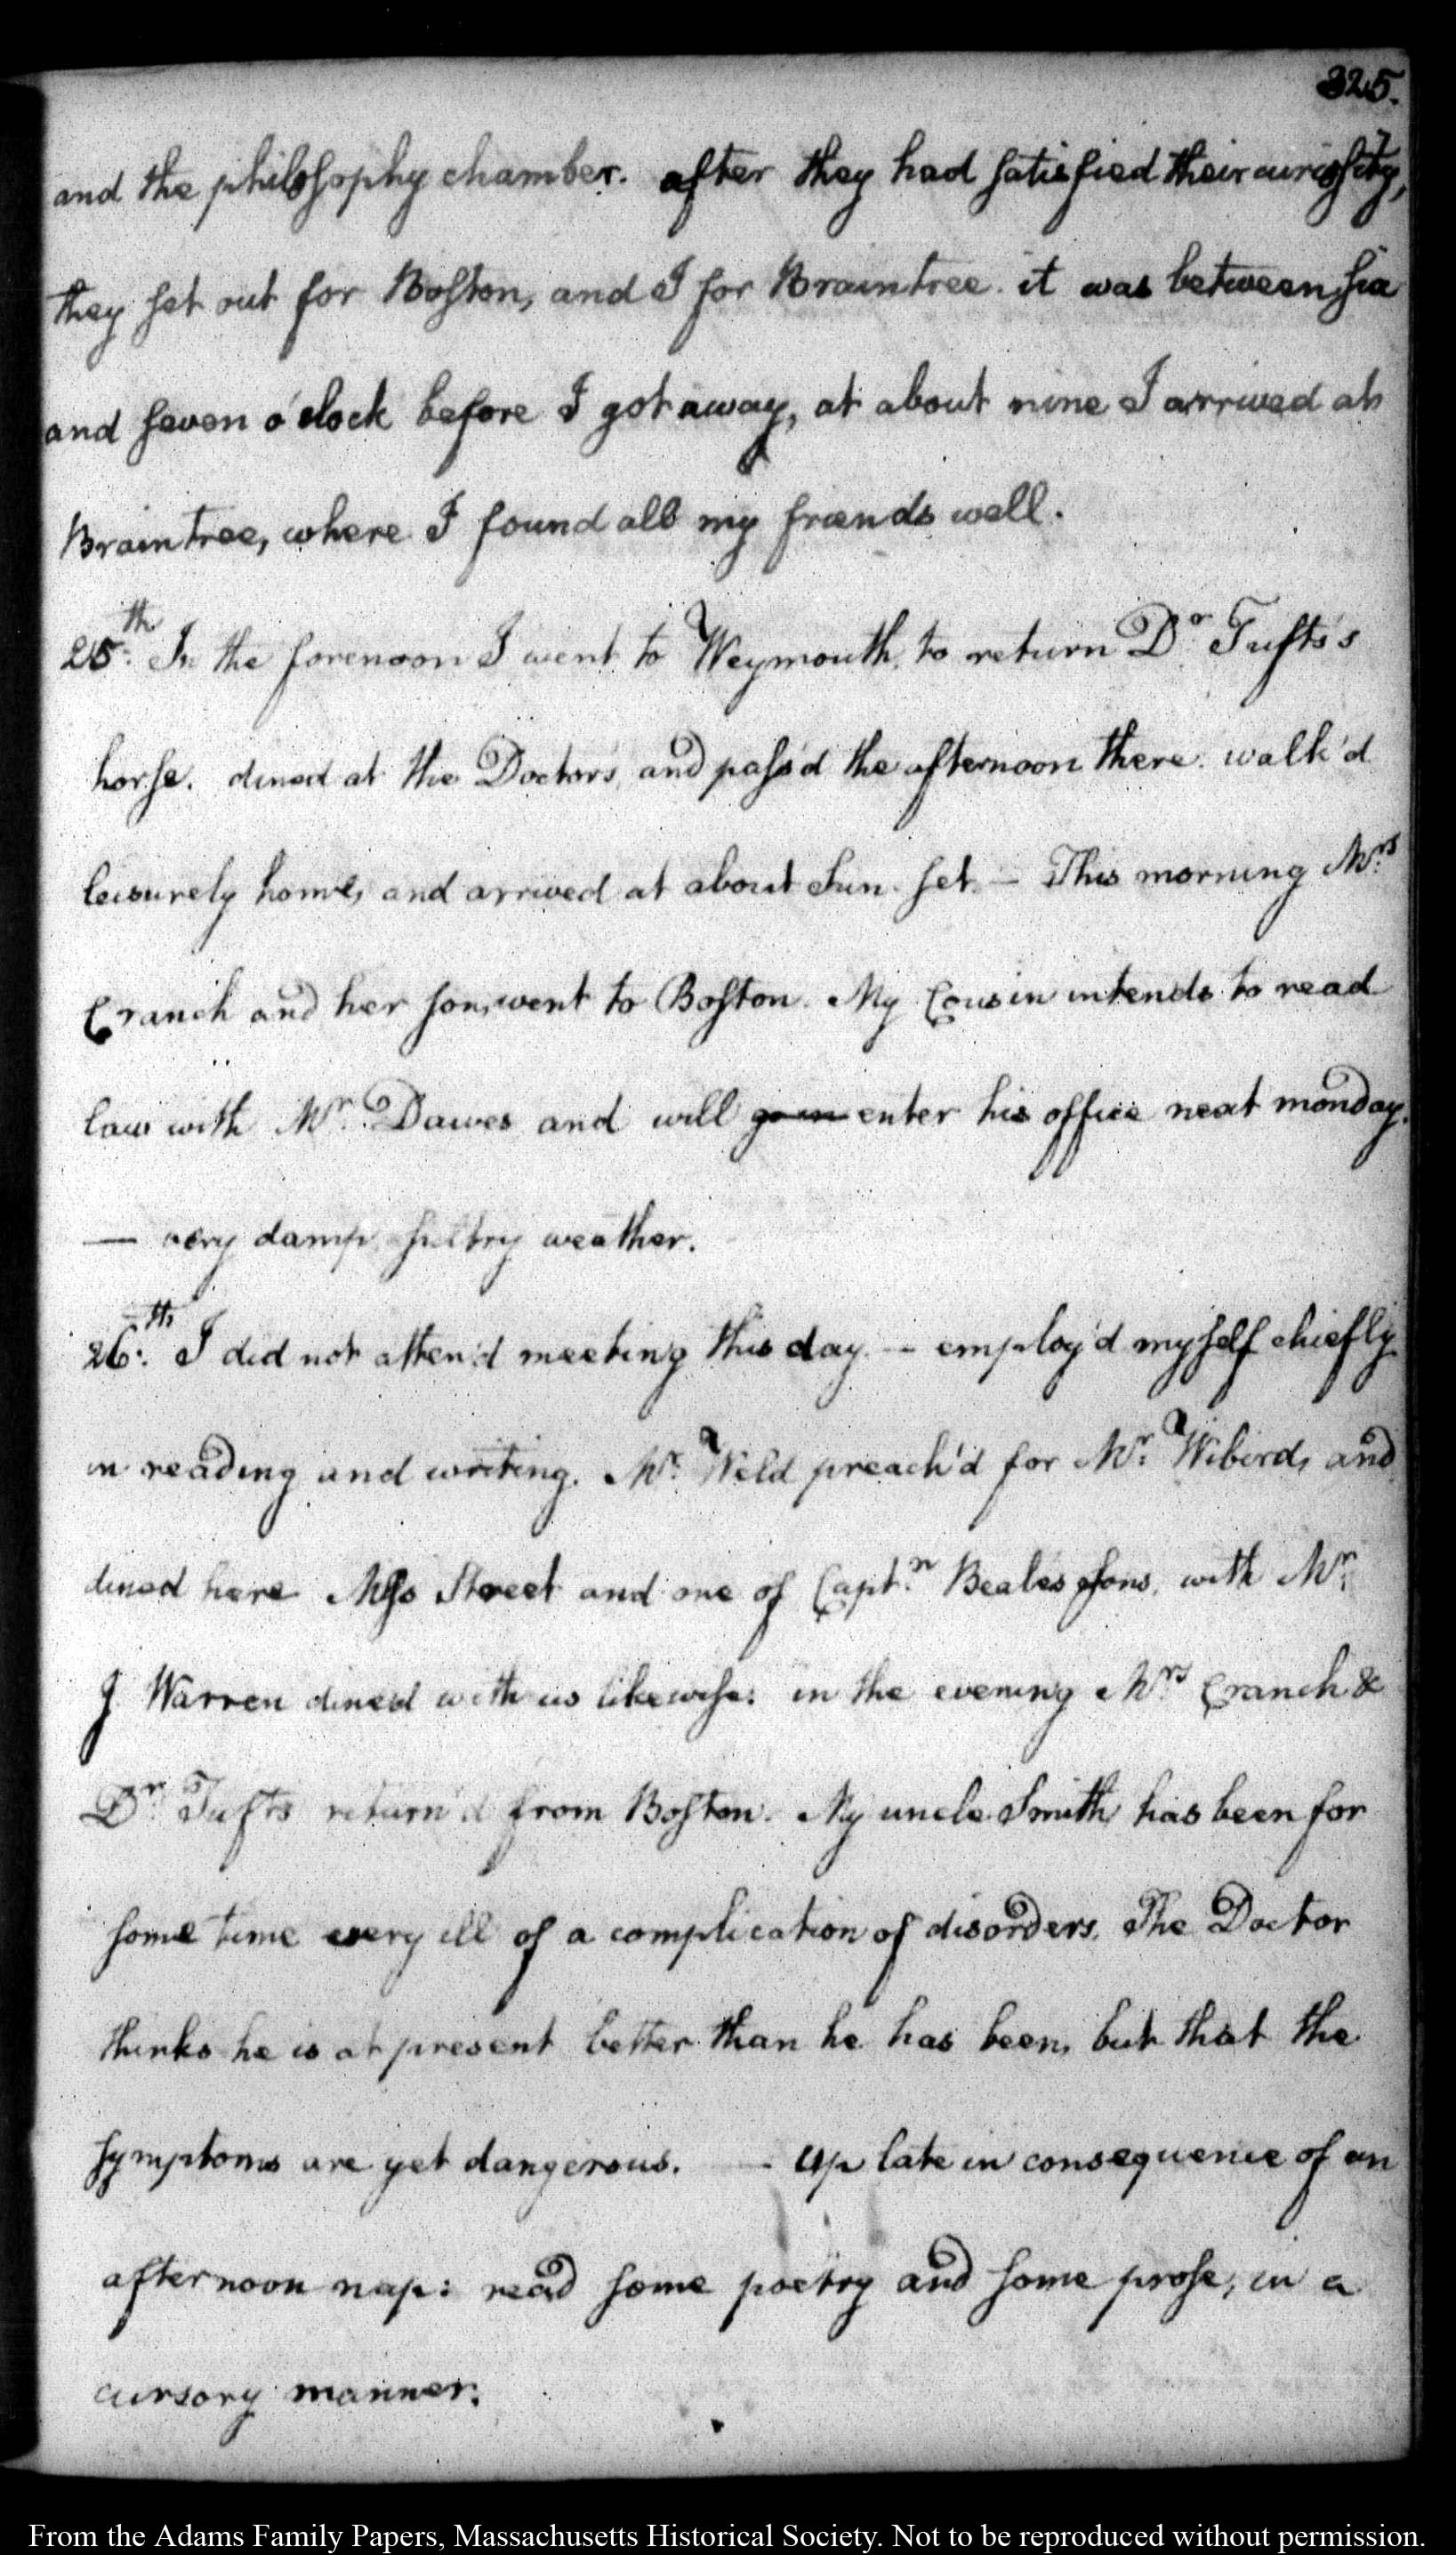 325.
and the philosophy chamber. after they had satisfied their curiosity,
they set out for Boston, and I for Braintree. it was between six
and seven o'clock before I got away, at about nine I arrived at
Braintree, where I found all my friends well.
25th. In the forenoon I went to Weymouth, to return Dr. Tufts's
horse. dined at the Doctor's, and pass'd the afternoon there. walk'd
leisurely home, and arrived at about Sun set. — This morning Mrs.
Cranch and her son, went to Boston. My Cousin intends to read
law with Mr. Dawes and will go in enter his office next monday.
— very damp, sultry weather.
26th. I did not attend meeting this day. — employ'd myself chiefly
in reading and writing. Mr. Weld preach'd for Mr. Wibird, and
dined here. Miss Street and one of Captn. Beales sons, with Mr.
J Warren dined with us likewise: in the evening Mrs. Cranch &
Dr. Tufts return'd from Boston. My uncle Smith, has been for
some time very ill of a complication of disorders. The Doctor
thinks he is at present better than he has been, but that the
symptoms are yet dangerous. — Up late in consequence of an
afternoon nap: read some poetry and some prose, in a
cursory manner.
From the Adams Family Papers, Massachusetts Historical Society. Not to be reproduced without permission.